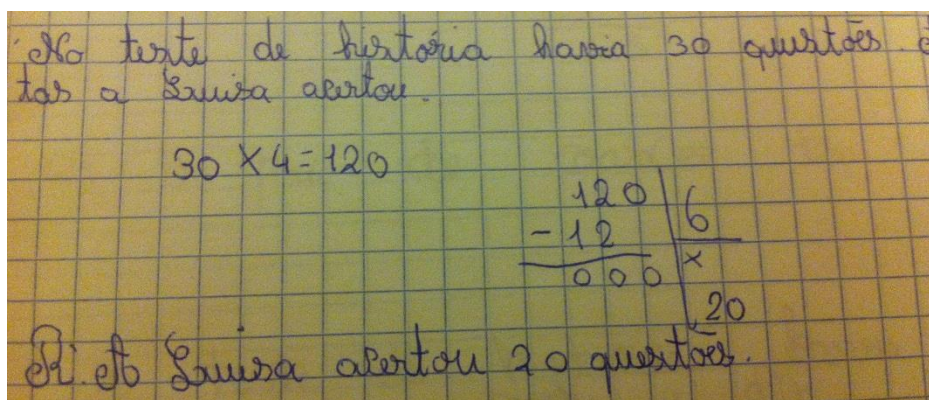 No teste de história havia 30 questões.
tas a Luisa acertou.
30 X 4 = 120
120 6
- 12
000 x
20
R: A Luisa acertou 20 questões.